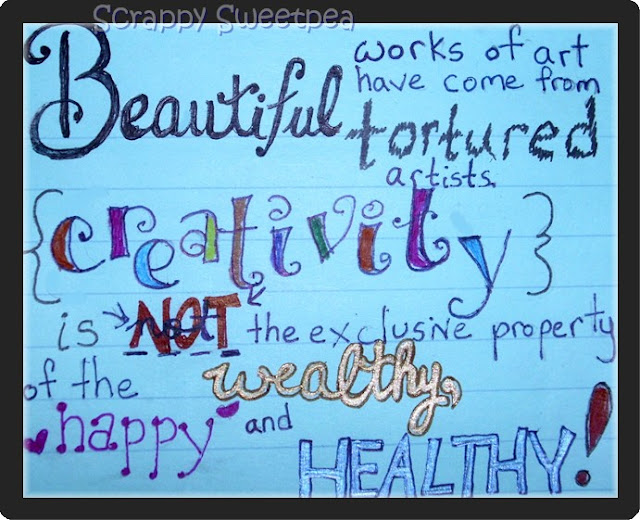 Scrappy Sweetpea
Beautiful works of art
have come from
tortured
artists.
{creativity}
is NOT the exclusive property
of the wealthy,
happy and
HEALTHY!